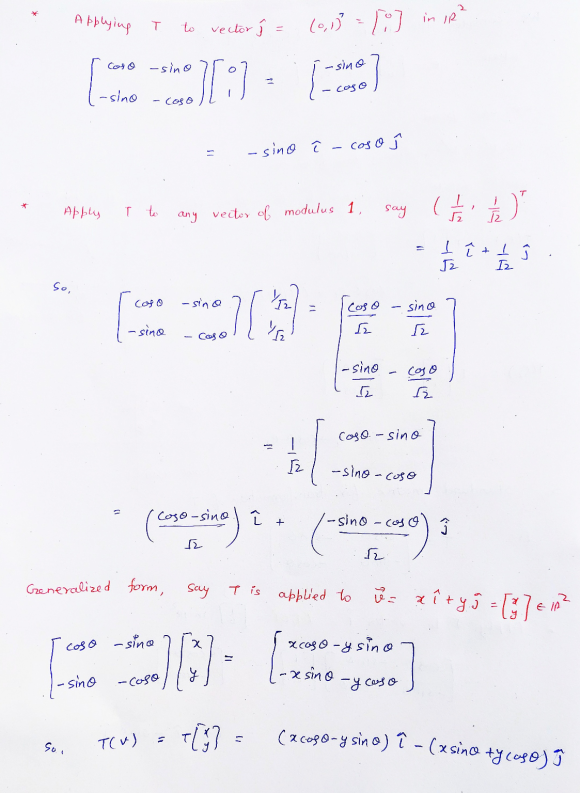 * Applying T to vector ĵ = (0,1)ᵀ = [0; 1] in ℝ²
[cosθ −sinθ; −sinθ −cosθ] [0; 1] = [−sinθ; −cosθ]
= −sinθ î − cosθ ĵ
* Apply T to any vector of modulus 1, say (1/√2, 1/√2)ᵀ
= 1/√2 î + 1/√2 ĵ .
So,
[cosθ −sinθ; −sinθ −cosθ] [1/√2; 1/√2] = [cosθ/√2 − sinθ/√2; −sinθ/√2 − cosθ/√2]
= 1/√2 [cosθ − sinθ; −sinθ − cosθ]
= ((cosθ − sinθ)/√2) î + ((−sinθ − cosθ)/√2) ĵ
Generalized form, say T is applied to v⃗ = x î + y ĵ = [x; y] ∈ ℝ²
[cosθ −sinθ; −sinθ −cosθ] [x; y] = [x cosθ − y sinθ; −x sinθ − y cosθ]
So, T(v) = T[x; y] = (x cosθ − y sinθ) î − (x sinθ + y cosθ) ĵ